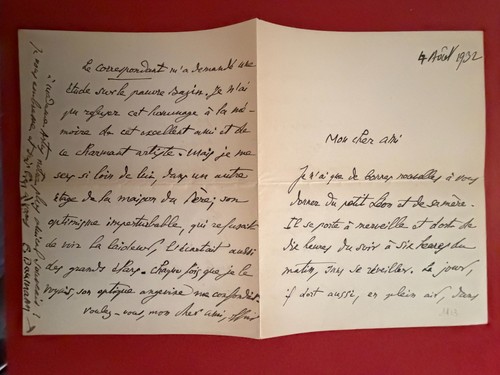 4 Août 1932
Mon cher ami
Je n'ai que de bonnes nouvelles à vous
donner du petit Léon et de sa mère.
Il se porte à merveille et dort de
dix heures du soir à six heures du
matin, sans se réveiller. Le jour,
il dort aussi, en plein air, dans
Le correspondant m'a demandé une
étude sur le pauvre Bazin. Je n'ai
pu refuser cet hommage à la mé-
moire de cet excellent ami et de
ce charmant artiste. Mais je me
sens si loin de lui, dans un autre
étage de la maison du Père; son
optimisme imperturbable, qui refusait
de voir la laideur, l'écartait aussi
des grands élans. Chaque fois que je le
voyais, son optique angevine me confondait.
Voulez-vous, mon cher ami,
Je vous embrasse